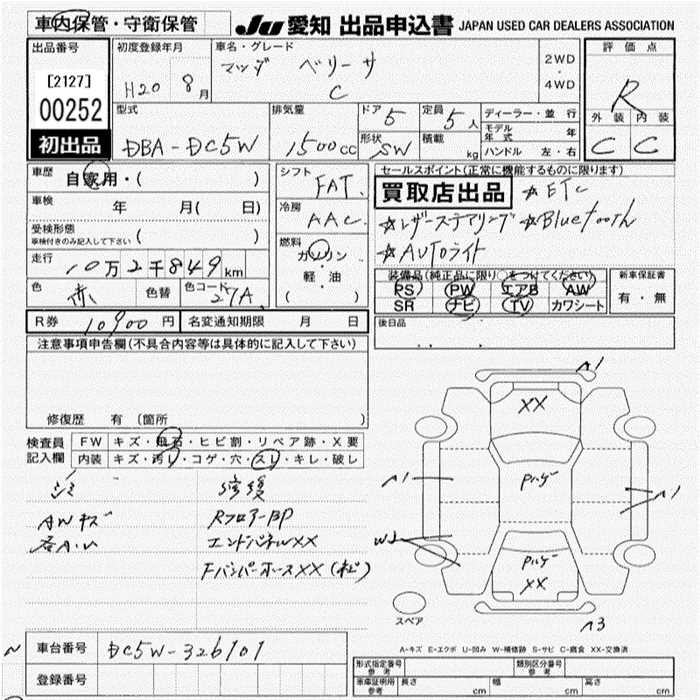 車内保管・守衛保管
JU 愛知 出品申込書 JAPAN USED CAR DEALERS ASSOCIATION
出品番号 初度登録年月 車名・グレード 評価点
[2127] H20 8月 マツダ ベリーサ C 2WD・4WD R
00252
型式 排気量 ドア 5 定員 5人 ディーラー・並行 外装 内装
初出品 DBA-DC5W 1500cc 形状 SW 積載 kg モデル年式 年 C C
ハンドル 左・右
車歴 自家用・( ) シフト FAT セールスポイント(正常に機能するものに限ります)
買取店出品 ☆ETC
車検 年 月( 日) 冷房 AAC
☆レザーステアリング ☆Bluetooth
受検形態 車検付きのみ記入して下さい ( ) 燃料 ガソリン・軽・油 ( )
☆AUTOライト
走行 10万2千849km
装備品(純正品に限り○をつけてください) 新車保証書
色 赤 色替 色コード 27A
PS PW エアB AW 有・無
SR ナビ TV カワシート
R券 10900円 名変通知期限 月 日
後日品
注意事項申告欄(不具合内容等は具体的に記入して下さい)
修復歴 有 〔箇所 〕
検査員記入欄 FW キズ・飛石・ヒビ割・リペア跡・X要
内装 キズ・汚レ・コゲ・穴・スレ・キレ・破レ
修復
AWキズ RフロアーBP
各A.U エンドパネルXX
FバンパーホースXX
A1
XX
A1
A1
W2
XX
A3
スペア
A-キズ E-エクボ U-凹み W-補修跡 S-サビ C-腐食 XX-交換済
車台番号 DC5W-326101
登録番号
形式指定番号 参考 類別区分番号 参考
車庫証明所 参考 長さ cm 幅 cm 高さ cm